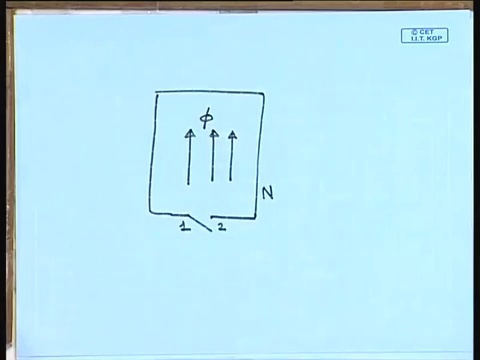 © CET
I.I.T. KGP
Φ
N
1 2